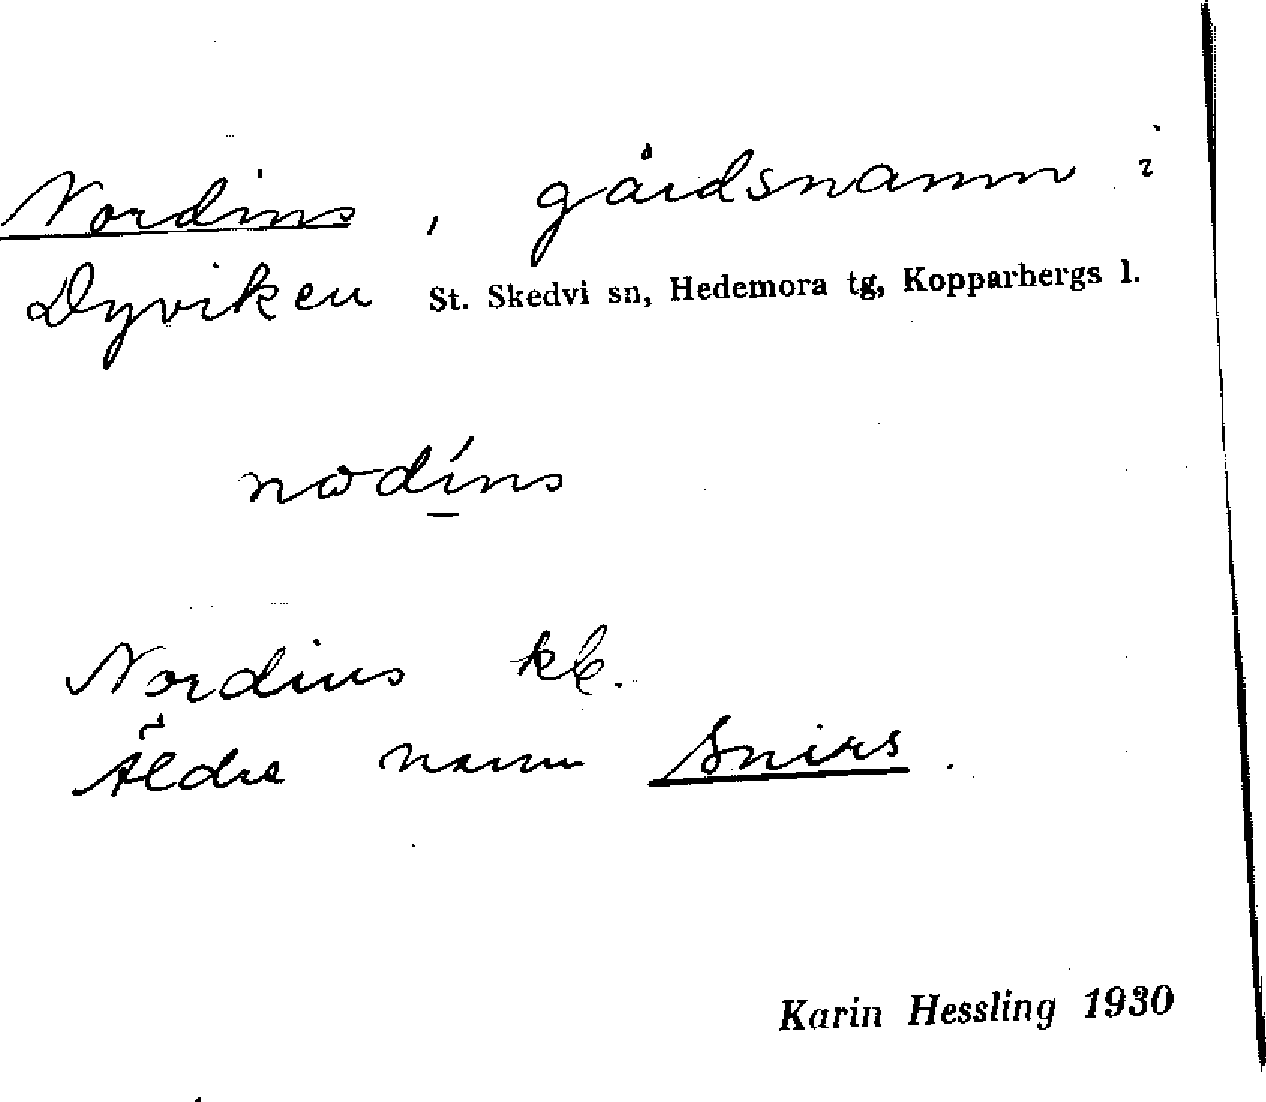 Nordins, gårdsnamn i
Dyviken St. Skedvi sn, Hedemora tg, Kopparbergs l.
nodíns
Nordins kb.
Äldre namn Snirs.
Karin Hessling 1930